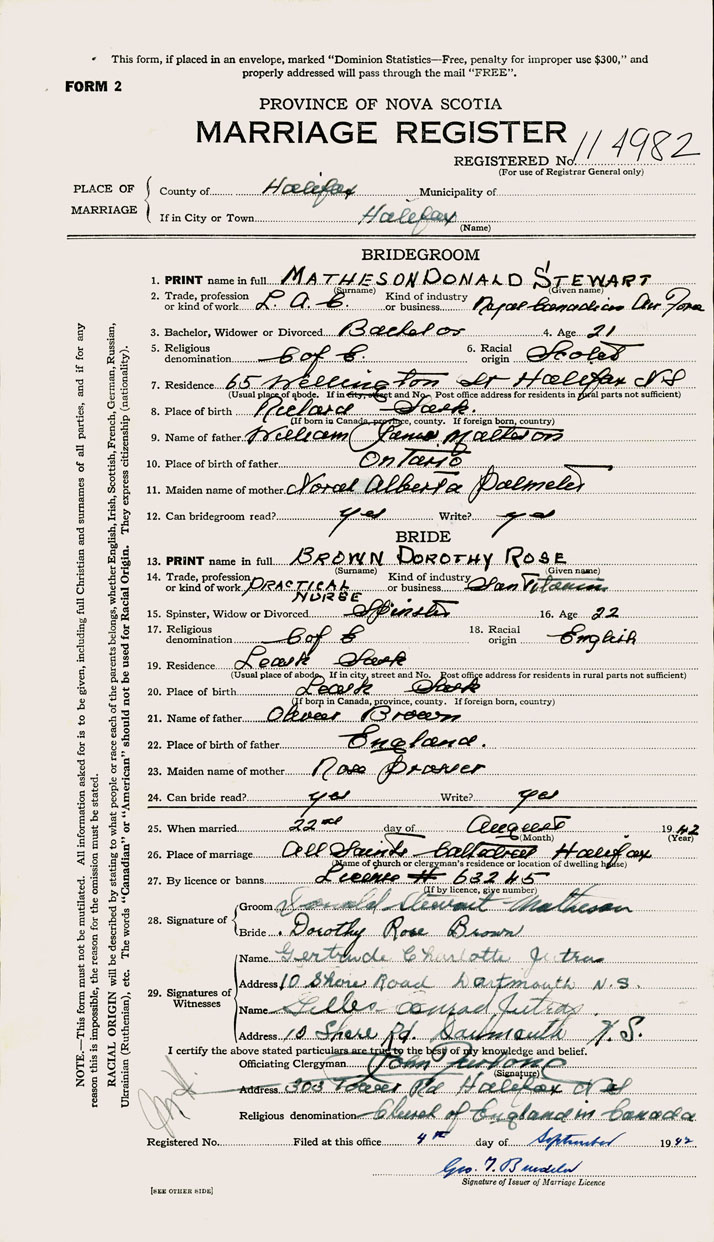 This form, if placed in an envelope, marked "Dominion Statistics—Free, penalty for improper use $300," and
properly addressed will pass through the mail "FREE".
FORM 2
PROVINCE OF NOVA SCOTIA
MARRIAGE REGISTER
REGISTERED No. 11 4982
(For use of Registrar General only)
PLACE OF MARRIAGE
County of Halifax Municipality of
If in City or Town Halifax
(Name)
BRIDEGROOM
1. PRINT name in full MATHESON DONALD STEWART
(Surname) (Given name)
2. Trade, profession or kind of work L.A.C. Kind of industry or business Royal Canadian Air Force
3. Bachelor, Widower or Divorced Bachelor 4. Age 21
5. Religious denomination C of E. 6. Racial origin Scotch
7. Residence 65 Wellington St Halifax NS
(Usual place of abode. If in city, street and No. Post office address for residents in rural parts not sufficient)
8. Place of birth Richard Sask.
(If born in Canada, province, county. If foreign born, country)
9. Name of father William James Matheson
10. Place of birth of father Ontario
11. Maiden name of mother Alberta Palmeter
12. Can bridegroom read? yes Write? yes
BRIDE
13. PRINT name in full BROWN DOROTHY ROSE
(Surname) (Given name)
14. Trade, profession or kind of work PRACTICAL NURSE Kind of industry or business Sanitarium
15. Spinster, Widow or Divorced Spinster 16. Age 22
17. Religious denomination C of E 18. Racial origin English
19. Residence Leask Sask
(Usual place of abode. If in city, street and No. Post office address for residents in rural parts not sufficient)
20. Place of birth Leask Sask
(If born in Canada, province, county. If foreign born, country)
21. Name of father Oliver Brown
22. Place of birth of father England.
23. Maiden name of mother Rose
24. Can bride read? yes Write? yes
25. When married 22nd day of August 1942
(Month) (Year)
26. Place of marriage All Saints Cathedral Halifax
(Name of church or clergyman's residence or location of dwelling house)
27. By licence or banns License # 63245
(If by licence, give number)
28. Signature of
Groom Donald Stewart Matheson
Bride Dorothy Rose Brown
29. Signatures of Witnesses
Name Gertrude Charlotte Jutras
Address 10 Shore Road Dartmouth N.S.
Name Gilles Conrad Jutras
Address 10 Shore Rd. Dartmouth N.S.
I certify the above stated particulars are true to the best of my knowledge and belief.
Officiating Clergyman John
(Signature)
Address 303 Tower Rd Halifax N S
Religious denomination Church of England in Canada
Registered No. Filed at this office 4th day of September 1942
Geo. T.
Signature of Issuer of Marriage Licence
[SEE OTHER SIDE]
NOTE.—This form must not be mutilated. All information asked for is to be given, including full Christian and surnames of all parties, and if for any
reason this is impossible, the reason for the omission must be stated.
RACIAL ORIGIN will be described by stating to what people or race each of the parents belongs, whether English, Irish, Scottish, French, German, Russian,
Ukrainian (Ruthenian), etc. The words "Canadian" or "American" should not be used for Racial Origin. They express citizenship (nationality).